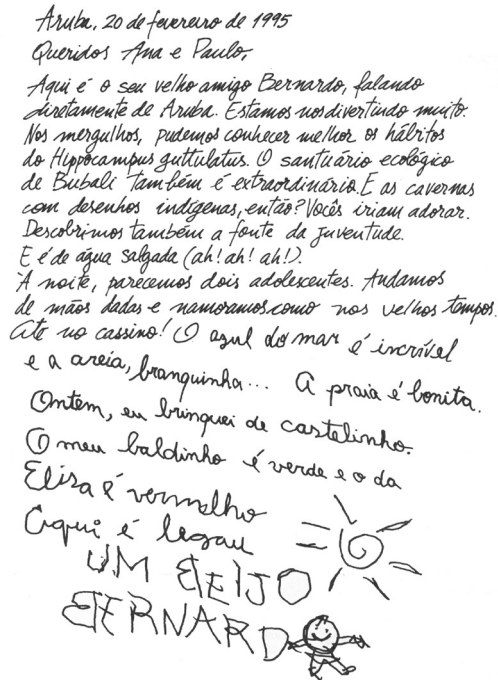 Aruba, 20 de fevereiro de 1995
Queridos Ana e Paulo,
Aqui é o seu velho amigo Bernardo, falando
diretamente de Aruba. Estamos nos divertindo muito.
Nos mergulhos, pudemos conhecer melhor os hábitos
do Hippocampus guttulatus. O santuário ecológico
de Bubali também é extraordinário. E as cavernas
com desenhos indígenas, então? Vocês iriam adorar.
Descobrimos também a fonte da juventude.
E é de água salgada (ah! ah! ah!).
À noite, parecemos dois adolescentes. Andamos
de mãos dadas e namoramos como nos velhos tempos.
Até no cassino! O azul do mar é incrível
e a areia, branquinha... A praia é bonita.
Ontem, eu brinquei de castelinho.
O meu baldinho é verde e o da
Elisa é vermelho
Aqui é legau
UM BEIJO
BERNARDO